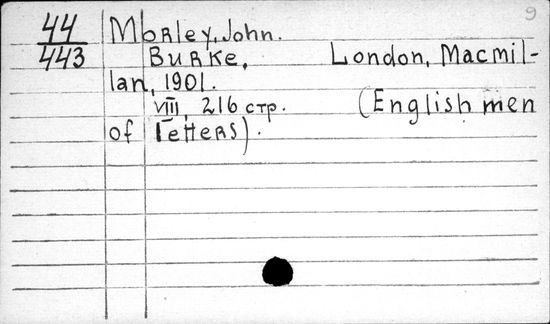 9
44
443
Morley, John.
Burke, London, Macmil-
lan, 1901.
VIII, 216 стр. (English men
of letters).